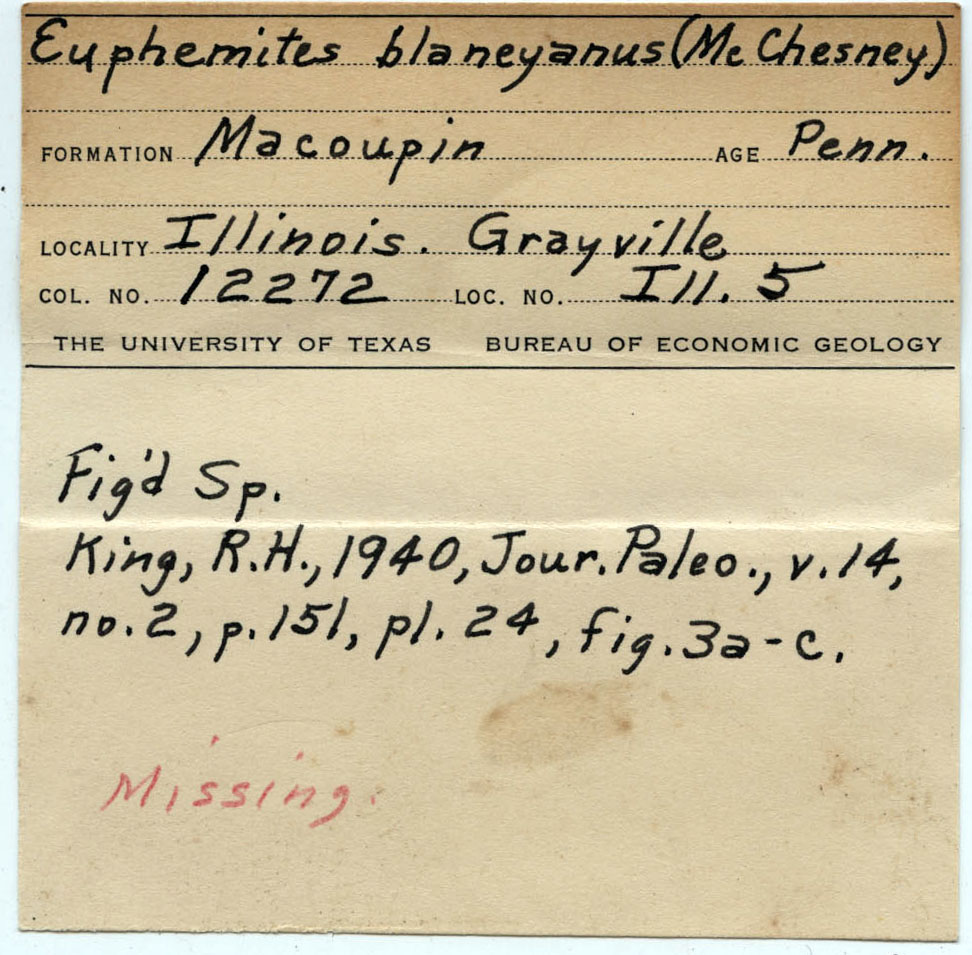 Euphemites blaneyanus (McChesney)
FORMATION Macoupin AGE Penn.
LOCALITY Illinois. Grayville
COL. NO. 12272 LOC. NO. Ill. 5
THE UNIVERSITY OF TEXAS BUREAU OF ECONOMIC GEOLOGY
Fig'd Sp.
King, R.H., 1940, Jour. Paleo., v. 14,
no. 2, p. 151, pl. 24, fig. 3a-c.
Missing.